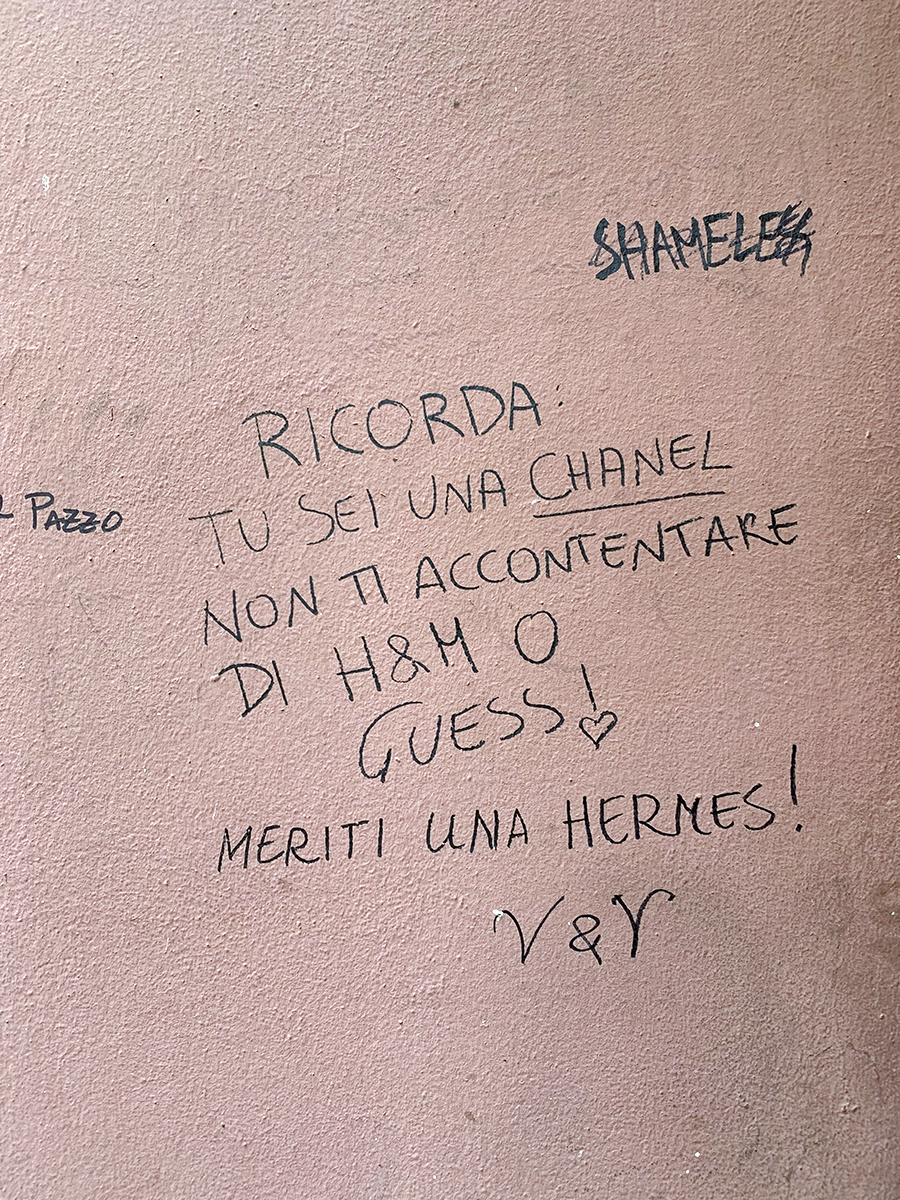 SHAMELESS
RICORDA:
TU SEI UNA CHANEL
L PAZZO
NON TI ACCONTENTARE
DI H&M O
GUESS!
MERITI UNA HERMES!
V & Y